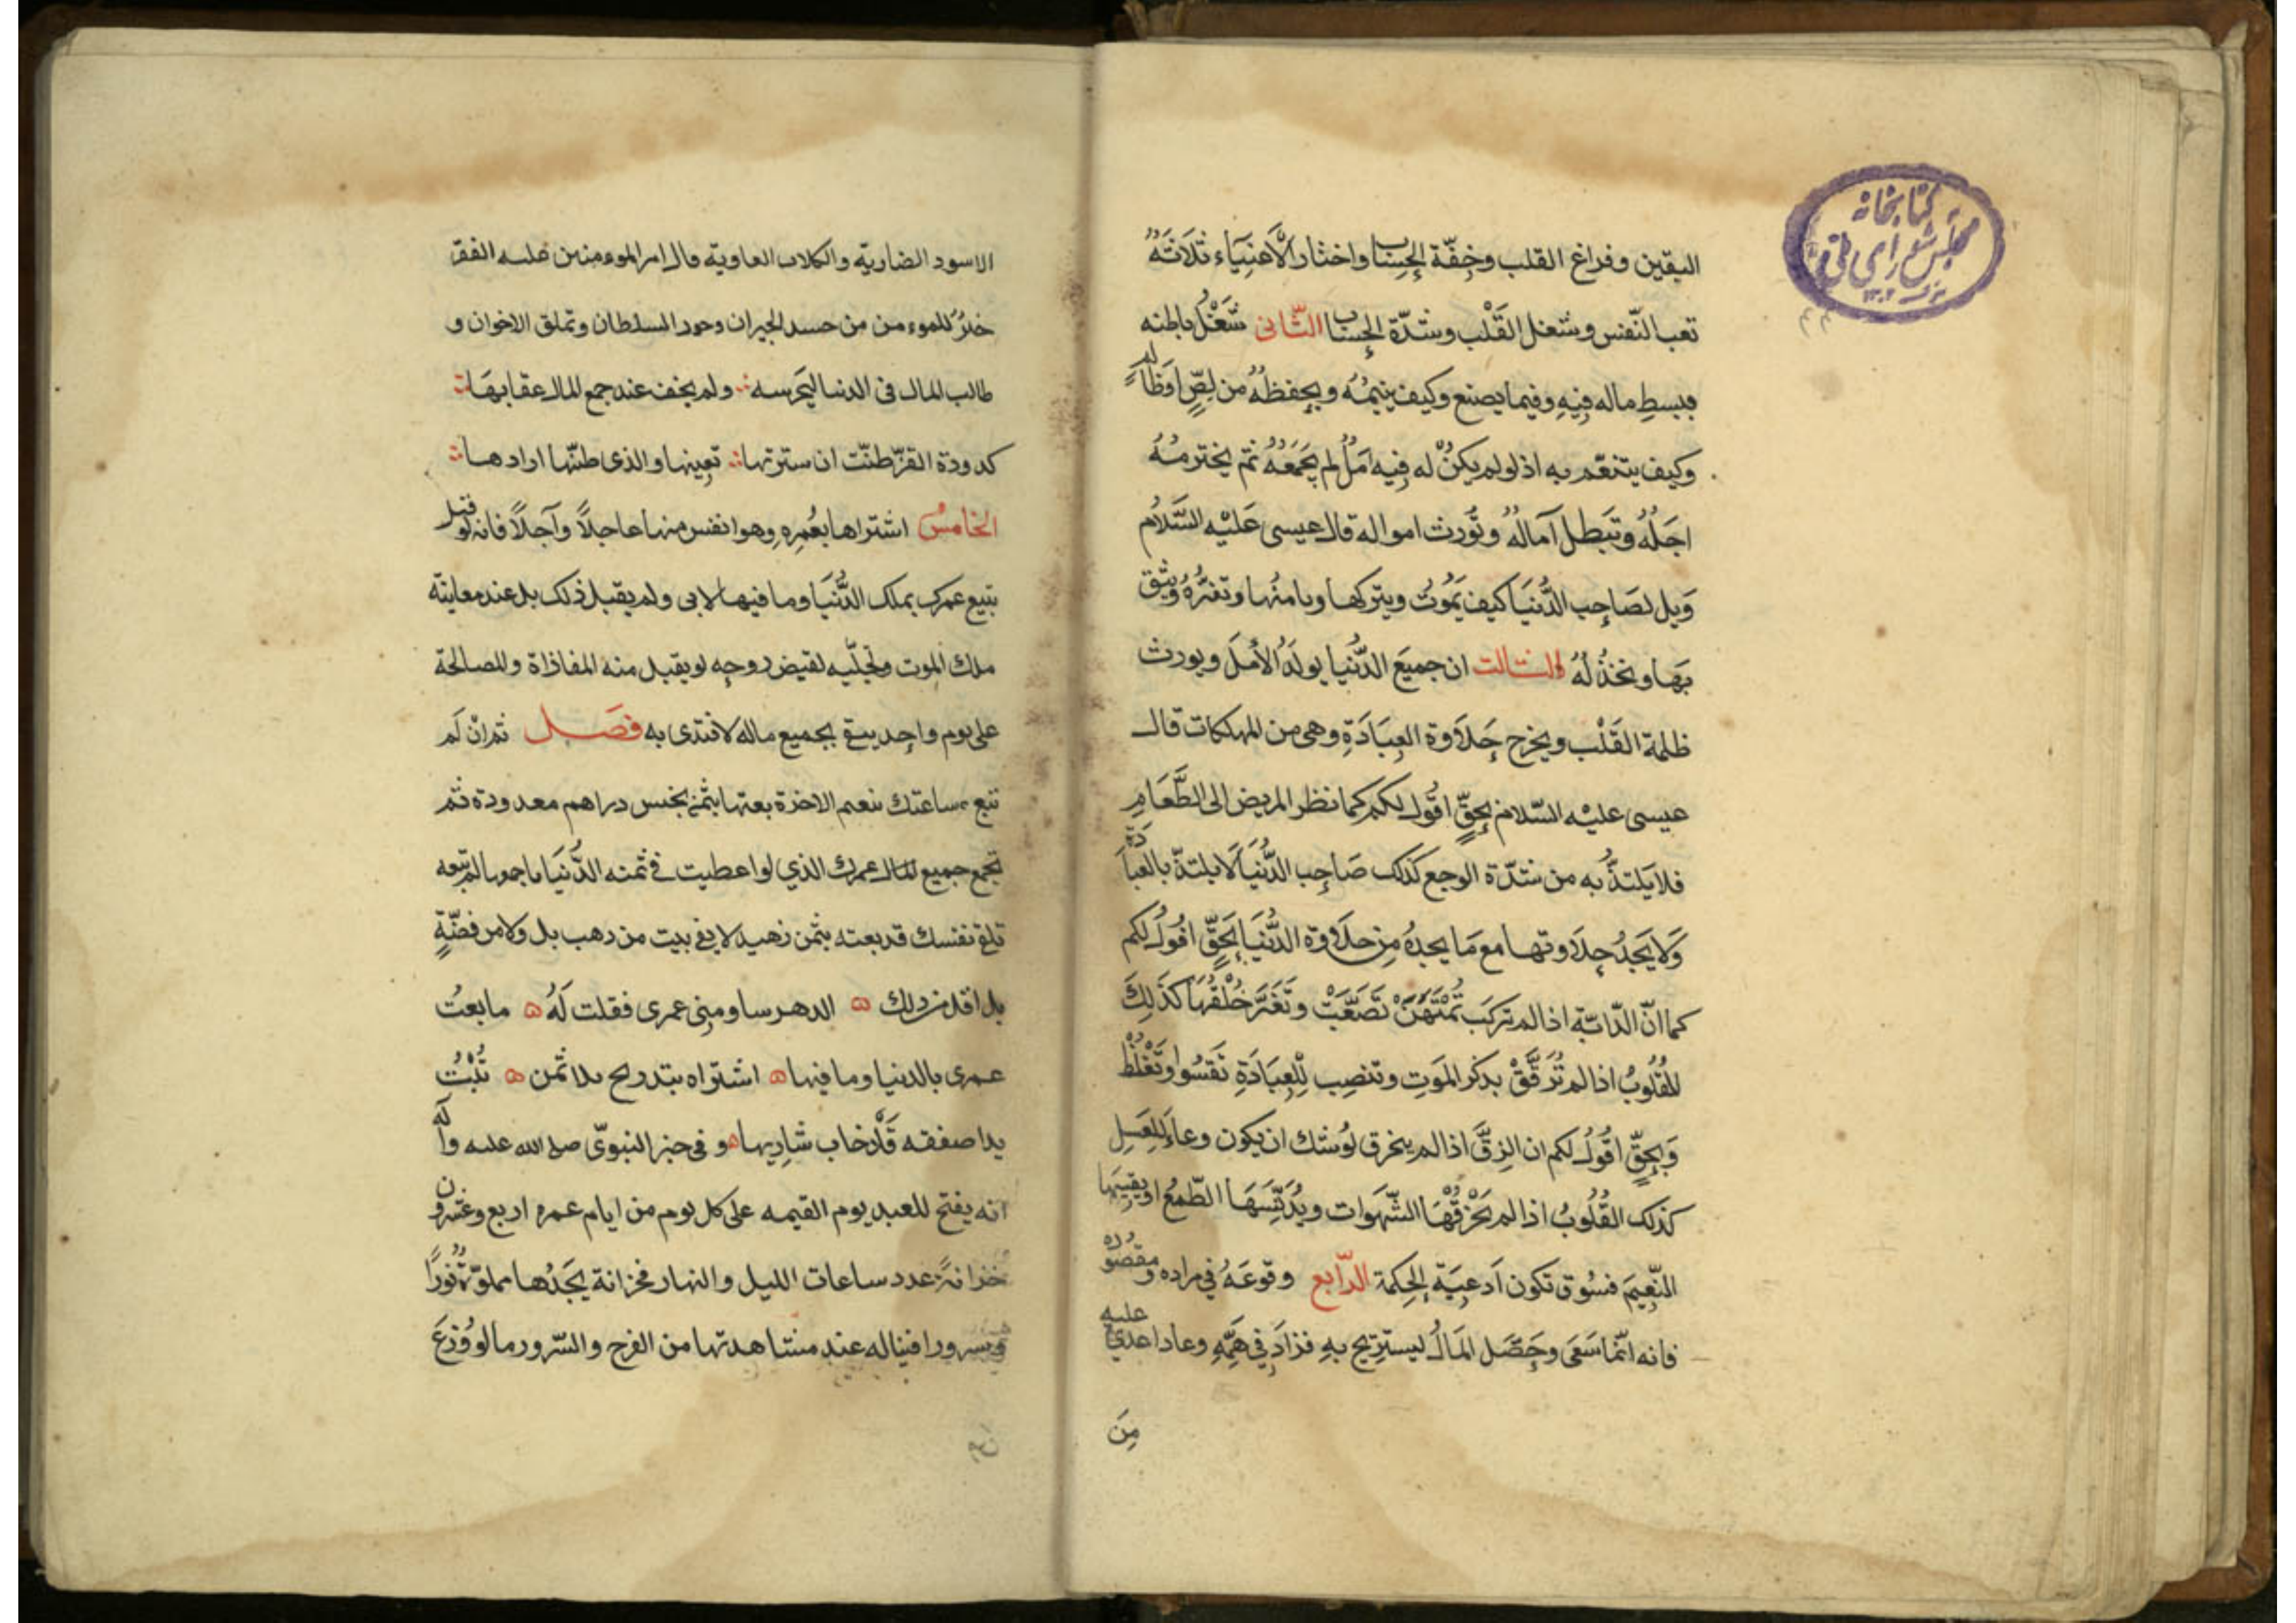 كتابخانه
مجلس شورای ملی
اليقين وفراغ القلب وخِفّة الحِساب واختار الأغنِيَآء ثَلَاثَةُ
تعب النّفس وشغل القَلْب وشدّة الحِساب الثّانى شَغْلُ باطنه
ببسطِ ماله فِيهِ وفيما يصنع وكيف ينمِيهُ ويحفظهُ من لِصٍّ اوظالمٍ
وكيف يتنعّم به اذ لو لم يكنْ له فِيه اَمَلُ لم يَجمَعهُ ثم يخترمُهُ
اجَلُهُ وتَبَطل آمالهُ وتُورث امواله قال عيسى عَليْه السَّلامُ
وَيل لصَاحِب الدُّنيَا كيف يَمُوتُ ويتركها ويامنُها وتغرُّهُ ويثق
بهَا وتخذُلهُ الثالث ان جميعَ الدّنيا يولدُ الأملَ ويورث
ظلمة القَلْب ويخرج حَلاَوة العِبَادَةِ وهى من المهلكات قال
عيسى عليْه السّلام بحِقٍّ اقُول لكم كما نظر المريض الى الطَّعَامِ
فلا يَلتذُّ به من شدّة الوجع كذلك صَاحِب الدُّنيَا لَا يلتذّ بالعبادَة
وَلَا يَجدُ حِلاَوتها مع مَا يجدهُ مِن حلاَوة الدُّنيَا بحَقٍّ اقُولُ لكم
كما انّ الدّابّة اذا لم تركَبَ تُمْتَهَنْ تَصَعّبَتْ وتَغَيَّرَ خُلْقُهَا كَذَلِكَ
القُلُوبُ اذا لم تُرَقَّقْ بذكر المَوتِ وتنصِب لِلعِبَادَةِ تَقسُوا وتَغْلُظْ
وَبحِقٍّ اقُولُ لكم ان الزقَّ اذا لم ينخرق يُوشك ان يكون وعاءً للعَسِل
كذلك القُلُوبُ اذا لم تَخْرقْهَا الشّهَوات ويُدَنّسَهَا الطّمعُ اويقسيها
النّعِيمَ فسُوق تكون اَدعِيَة الحِكمَة الرّابع وقوعَهُ فى مراده ومقصوده
فانه انّما سَعَى وحَصّل المَالُ ليستِريح بهِ فزادَ فِي هَمِّهِ وعاد اعدى عليه
مِنَ
الاسود الضارية والكلاب العاوية قال امير الموءمنين عليه الفقر
خيرُ للموءمن من حسد الجيران وجور السلطان وتملق الاخوان و
طالب المال فى الدنيا ليَحرسه ولم يخف عند جمع المال عقابهَا
كدودة القزّ ظنّت ان سترتها تعِينها والذى ظنّها ارادها
الخامسُ اشتراها بعُمِره وهو انفس منها عاجلاً وآجلاً فانه لو قيل
تبيع عمرك بملك الدُّنيَا وما فيها لابى ولم يقبل ذلك بل عند معاينة
ملك الموت وتجلّيه لقيض روحِه لو يقبل منه المفاداة والمصالحة
على يوم واحِد يبقى بجميع ماله لافتدى به فَصَل ثم انْ لَم
تبع ساعتك بنعيم الاخرة بعتها بثمَن بخس دراهم معدودة ثم
تجمع جميع للمال عمرك الذي لو اعطيت فى ثمنه الدُّنيَا باجمعها لم تبعه
تلق نفسك قد بعته بثمن زهيد لا يفى ببيت من ذهب بل ولا من فضّةٍ
بل اقل من ذلك الدهر ساومنِى عمرى فقلت لَهُ ما بعتُ
عمرى بالدنيا وما فيها اشتراه بتدريج بلا ثمن تُبّتْ
يدا صفقه قَدْ خاب شارِيها و فى خبر النبوىّ صلى الله عليه وآله
انه يفتح للعبد يوم القيمه على كل يوم من ايام عمره اربع وعشرون
خزانةً عدد ساعات الليل والنهار فخزانة يَجدُها مملوّةً نُورًا
وسرورا فيناله عند مشاهدتها من الفرح والسّرور ما لو وُزعَ